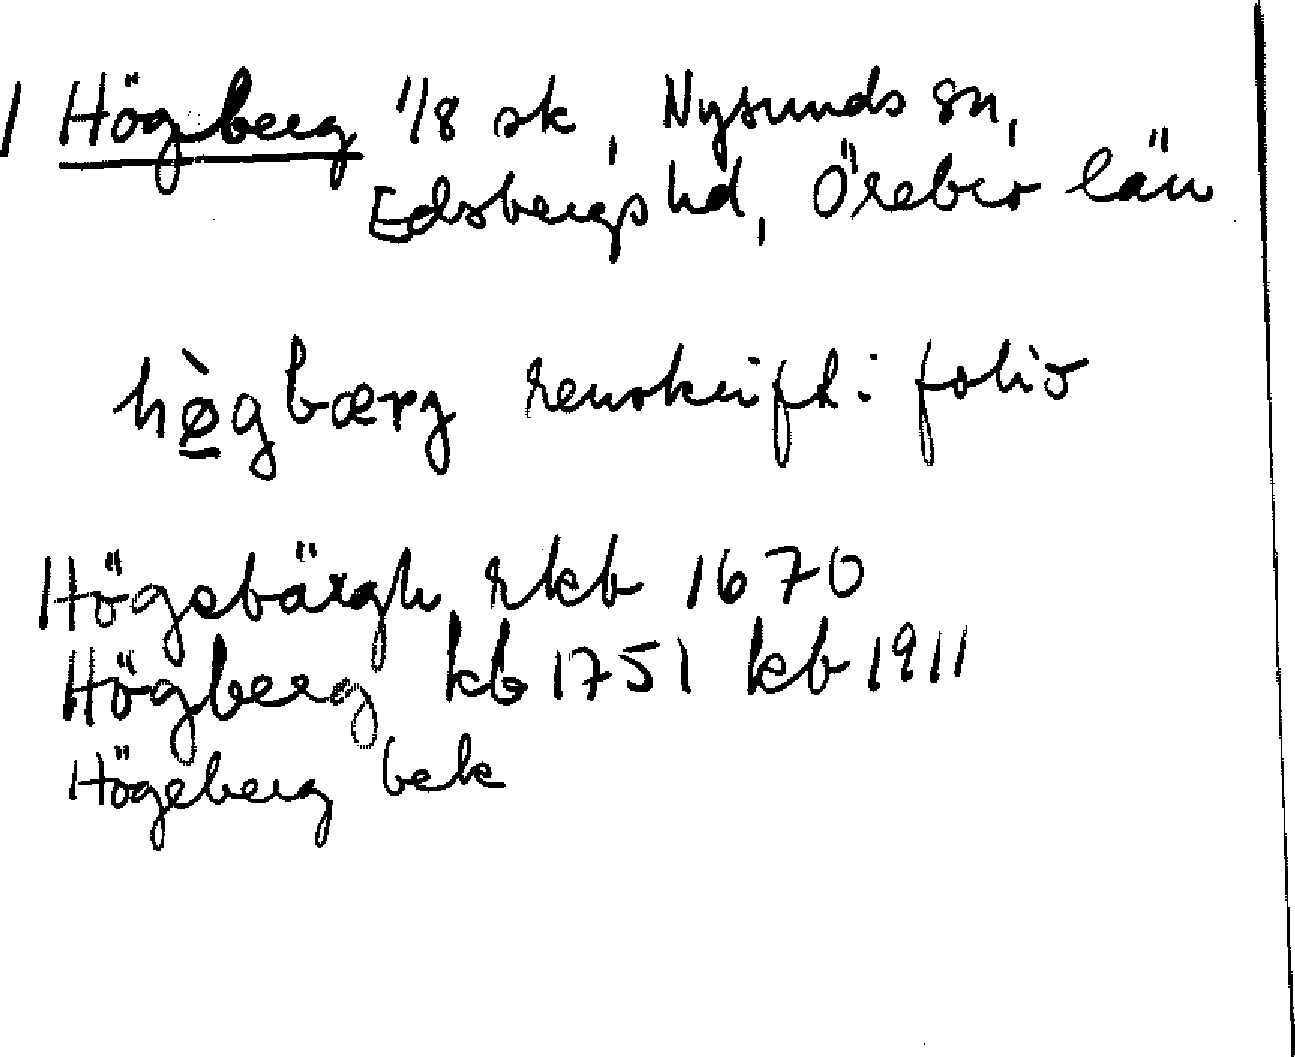 / Högberg 1/8 sk, Nysunds sn,
Edsbergs hd, Örebro län
hø̀gbærg renskrift: folio
Högsbärgh rkb 1670
Högberg kb 1751 kb 1911
Högeberg bek